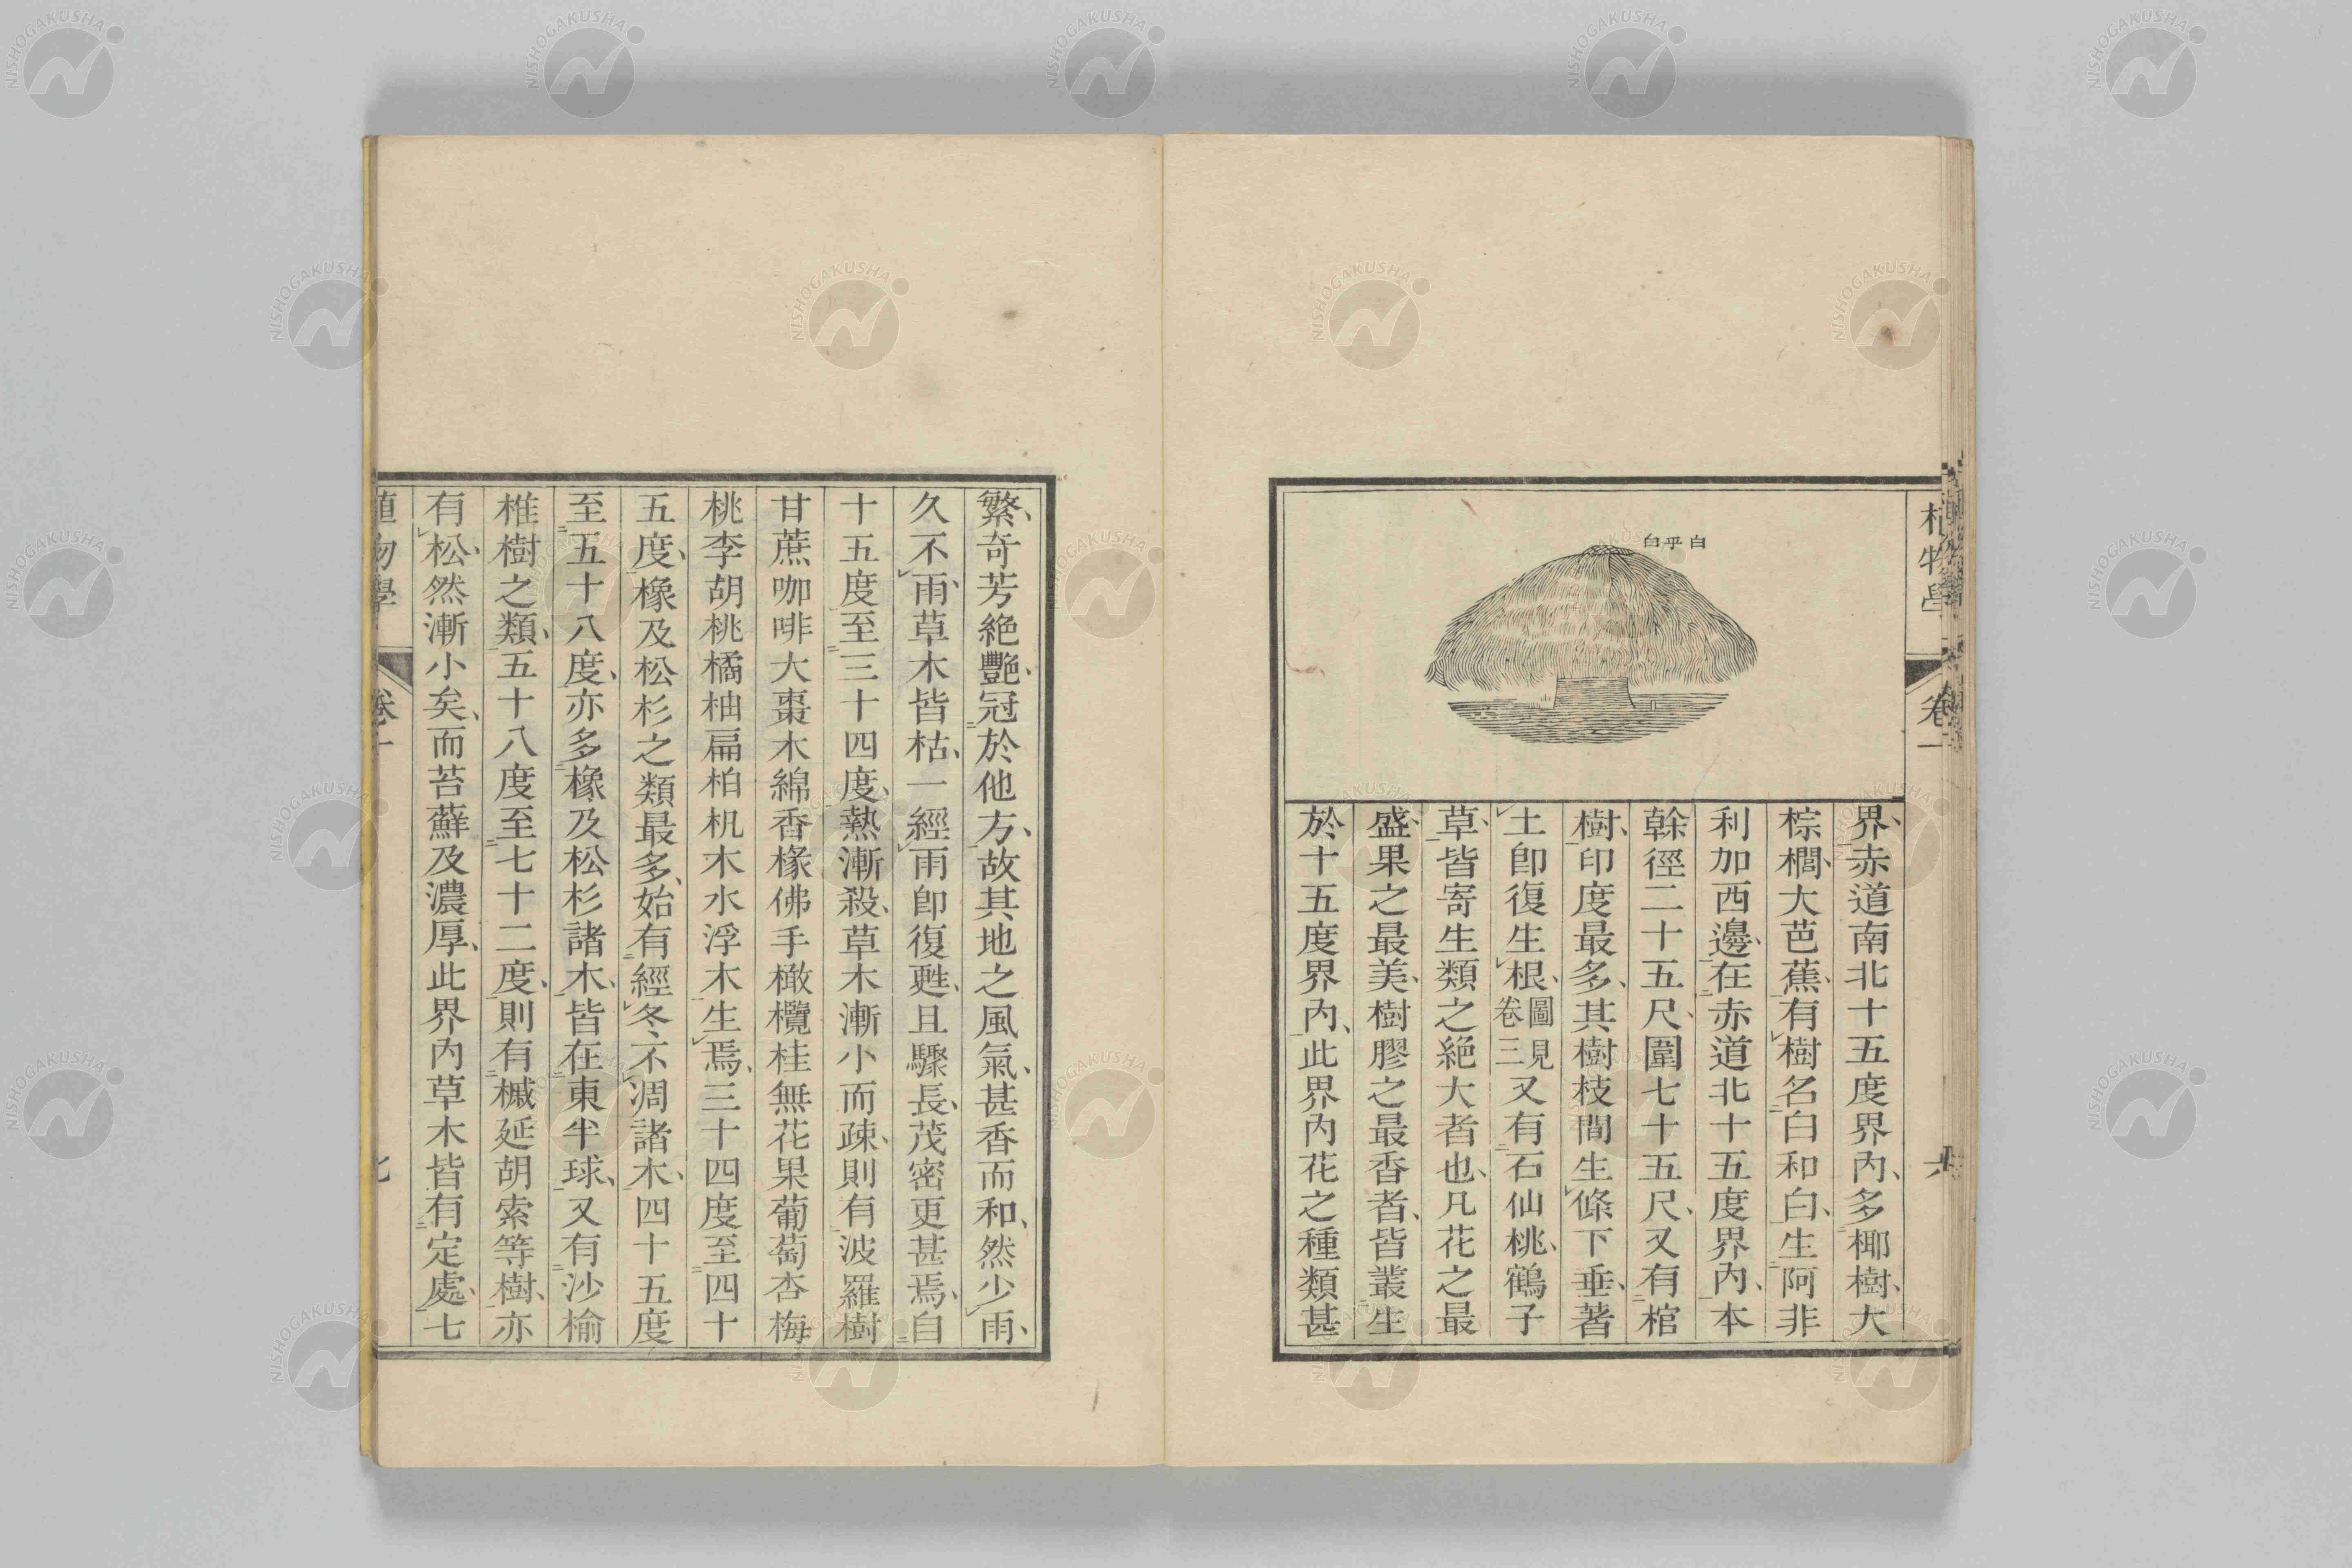 白乎白
界、赤道南北十五度界內、多椰樹、大
棕櫚、大芭蕉、有樹名白和白、生阿非
利加西邊、在赤道北十五度界內、本
榦徑二十五尺、圍七十五尺、又有棺
樹、印度最多、其樹枝間生條下垂、著
土卽復生根、圖見卷三又有石仙桃、鶴子
草、皆寄生類之絕大者也、凡花之最
盛、果之最美、樹膠之最香者、皆叢生
於十五度界內、此界內花之種類甚
繁、奇芳絕艷、冠於他方、故其地之風氣、甚香而和、然少雨、
久不雨、草木皆枯、一經雨卽復甦、且驟長、茂密更甚焉、自
十五度至三十四度、熱漸殺、草木漸小而疎、則有波羅樹
甘蔗咖啡大棗木綿香椽佛手橄欖桂無花果葡萄杏梅
桃李胡桃橘柚扁柏杋木水浮木生焉、三十四度至四十
五度、橡及松杉之類最多、始有經冬不凋諸木、四十五度
至五十八度、亦多橡及松杉諸木、皆在東半球、又有沙榆
椎樹之類、五十八度至七十二度、則有槭延胡索等樹、亦
有松、然漸小矣、而苔蘚及濃厚、此界內草木皆有定處、七
植物學
卷一
七
NISHOGAKUSHA